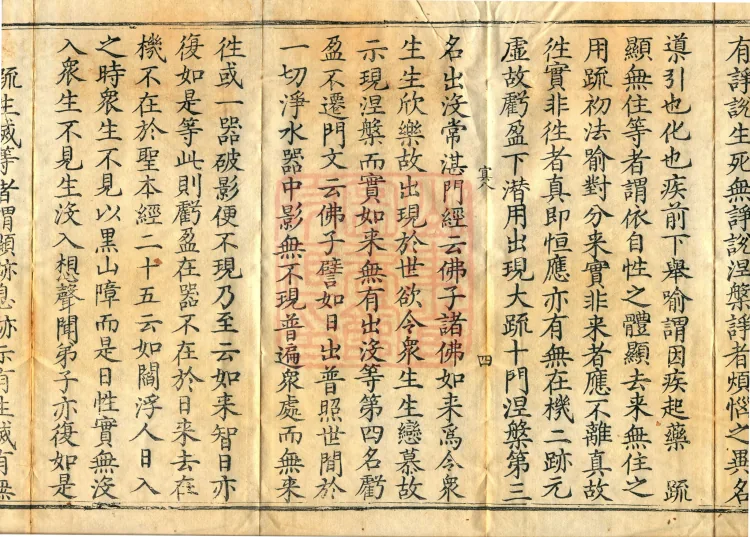 有諍說生死無諍說涅槃諍者煩惱之異名
導引也化也疾前下舉喻謂因疾起藥　疏
顯無住等者謂依自性之體顯去来無住之
用疏初法喻對分来實非来者應不離真故
徃實非徃者真即恒應亦有無在機二跡元
虛故虧盈下潜用出現大疏十門涅槃第三
四
名出没常湛門經云佛子諸佛如来爲令衆
生生欣樂故出現於世欲令衆生生戀慕故
示現涅槃而實如来無有出没等第四名虧
盈不遷門文云佛子譬如日出普照世間於
一切淨水器中影無不現普遍衆處而無来
徃或一器破影便不現乃至云如来智日亦
復如是等此則虧盈在器不在於日来去在
機不在於聖本經二十五云如閻浮人日入
之時衆生不見以黒山障而是日性實無没
入衆生不見生没入想聲聞弟子亦復如是
疏生滅等者謂顯亦息亦示有生滅有無